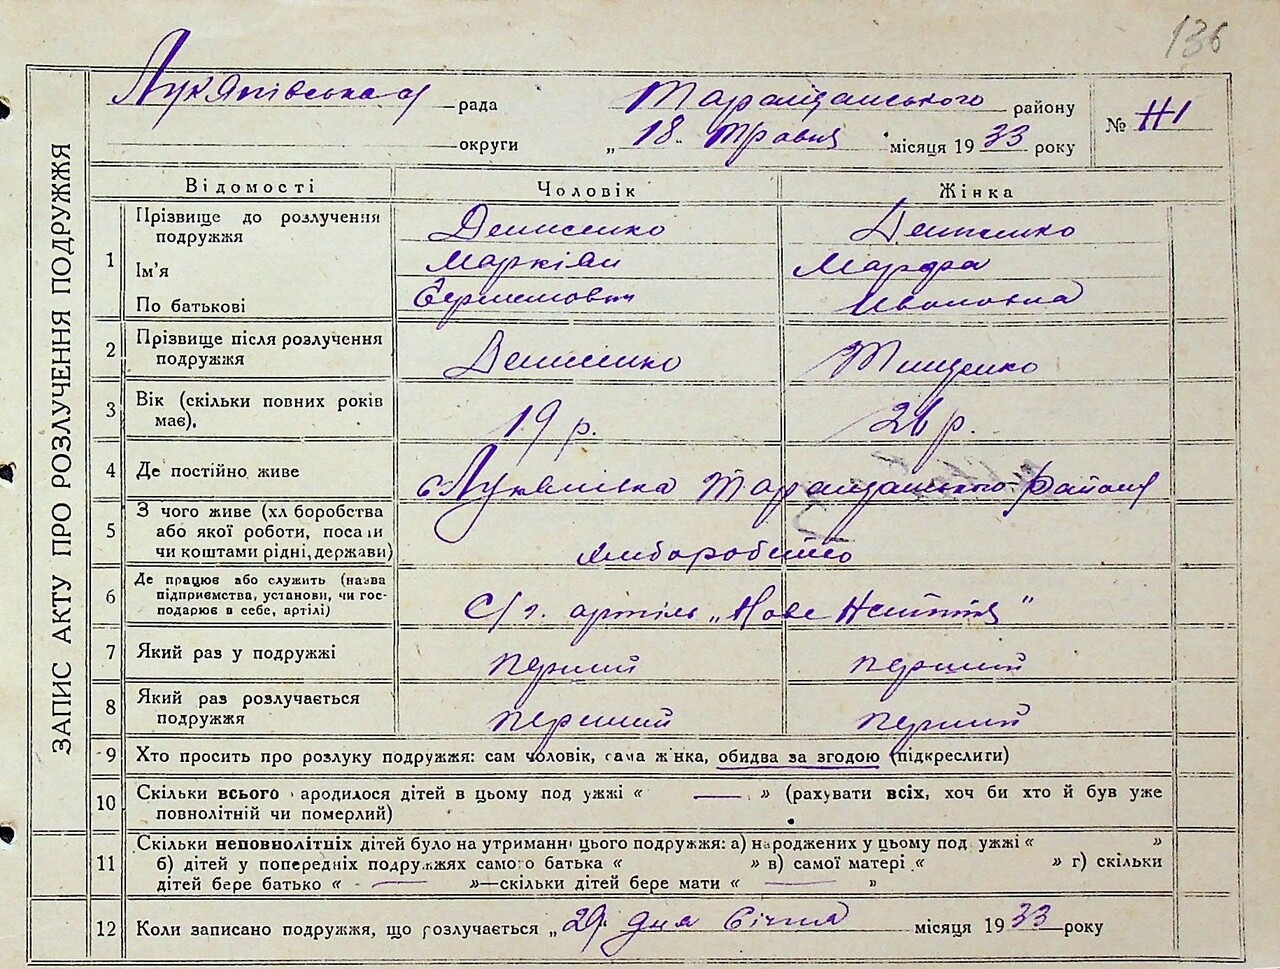 136
ЗАПИС АКТУ ПРО РОЗЛУЧЕННЯ ПОДРУЖЖЯ
Лукянівська рада Таращанського району
округи „18" Травня місяця 1933 року
№
Відомості Чоловік Жінка
1 Прізвище до розлучення подружжя Денисенко Денисенко
Ім'я Маркіян Марфа
По батькові
2 Прізвище після розлучення подружжя Денисенко Тищенко
3 Вік (скільки повних років має). 19 р. р.
4 Де постійно живе с Лукянівка Таращанського району
5 З чого живе (хл боробства
або якої роботи, посади
чи коштами рідні, держави)
6 Де працює або служить (назва
підприємства, установи, чи гос-
подарює в себе, артілі) С/г. артіль „Нове Життя"
7 Який раз у подружжі перший перший
8 Який раз розлучається
подружжя перший перший
9 Хто просить про розлуку подружжя: сам чоловік, сама ж нка, обидва за згодою (підкреслиги)
10 Скільки всього ародилося дітей в цьому под ужжі « — » (рахувати всіх, хоч би хто й був уже
повнолітній чи померлий)
11 Скільки неповнолітніх дітей було на утриманні цього подружжя: а) народжених у цьому под ужжі « »
б) дітей у попередніх подружжях самого батька « » в) самої матері « » г) скільки
дітей бере батько « — »—скільки дітей бере мати « — »
12 Коли записано подружжя, що розлучається „29" дня Січня місяця 1933 року